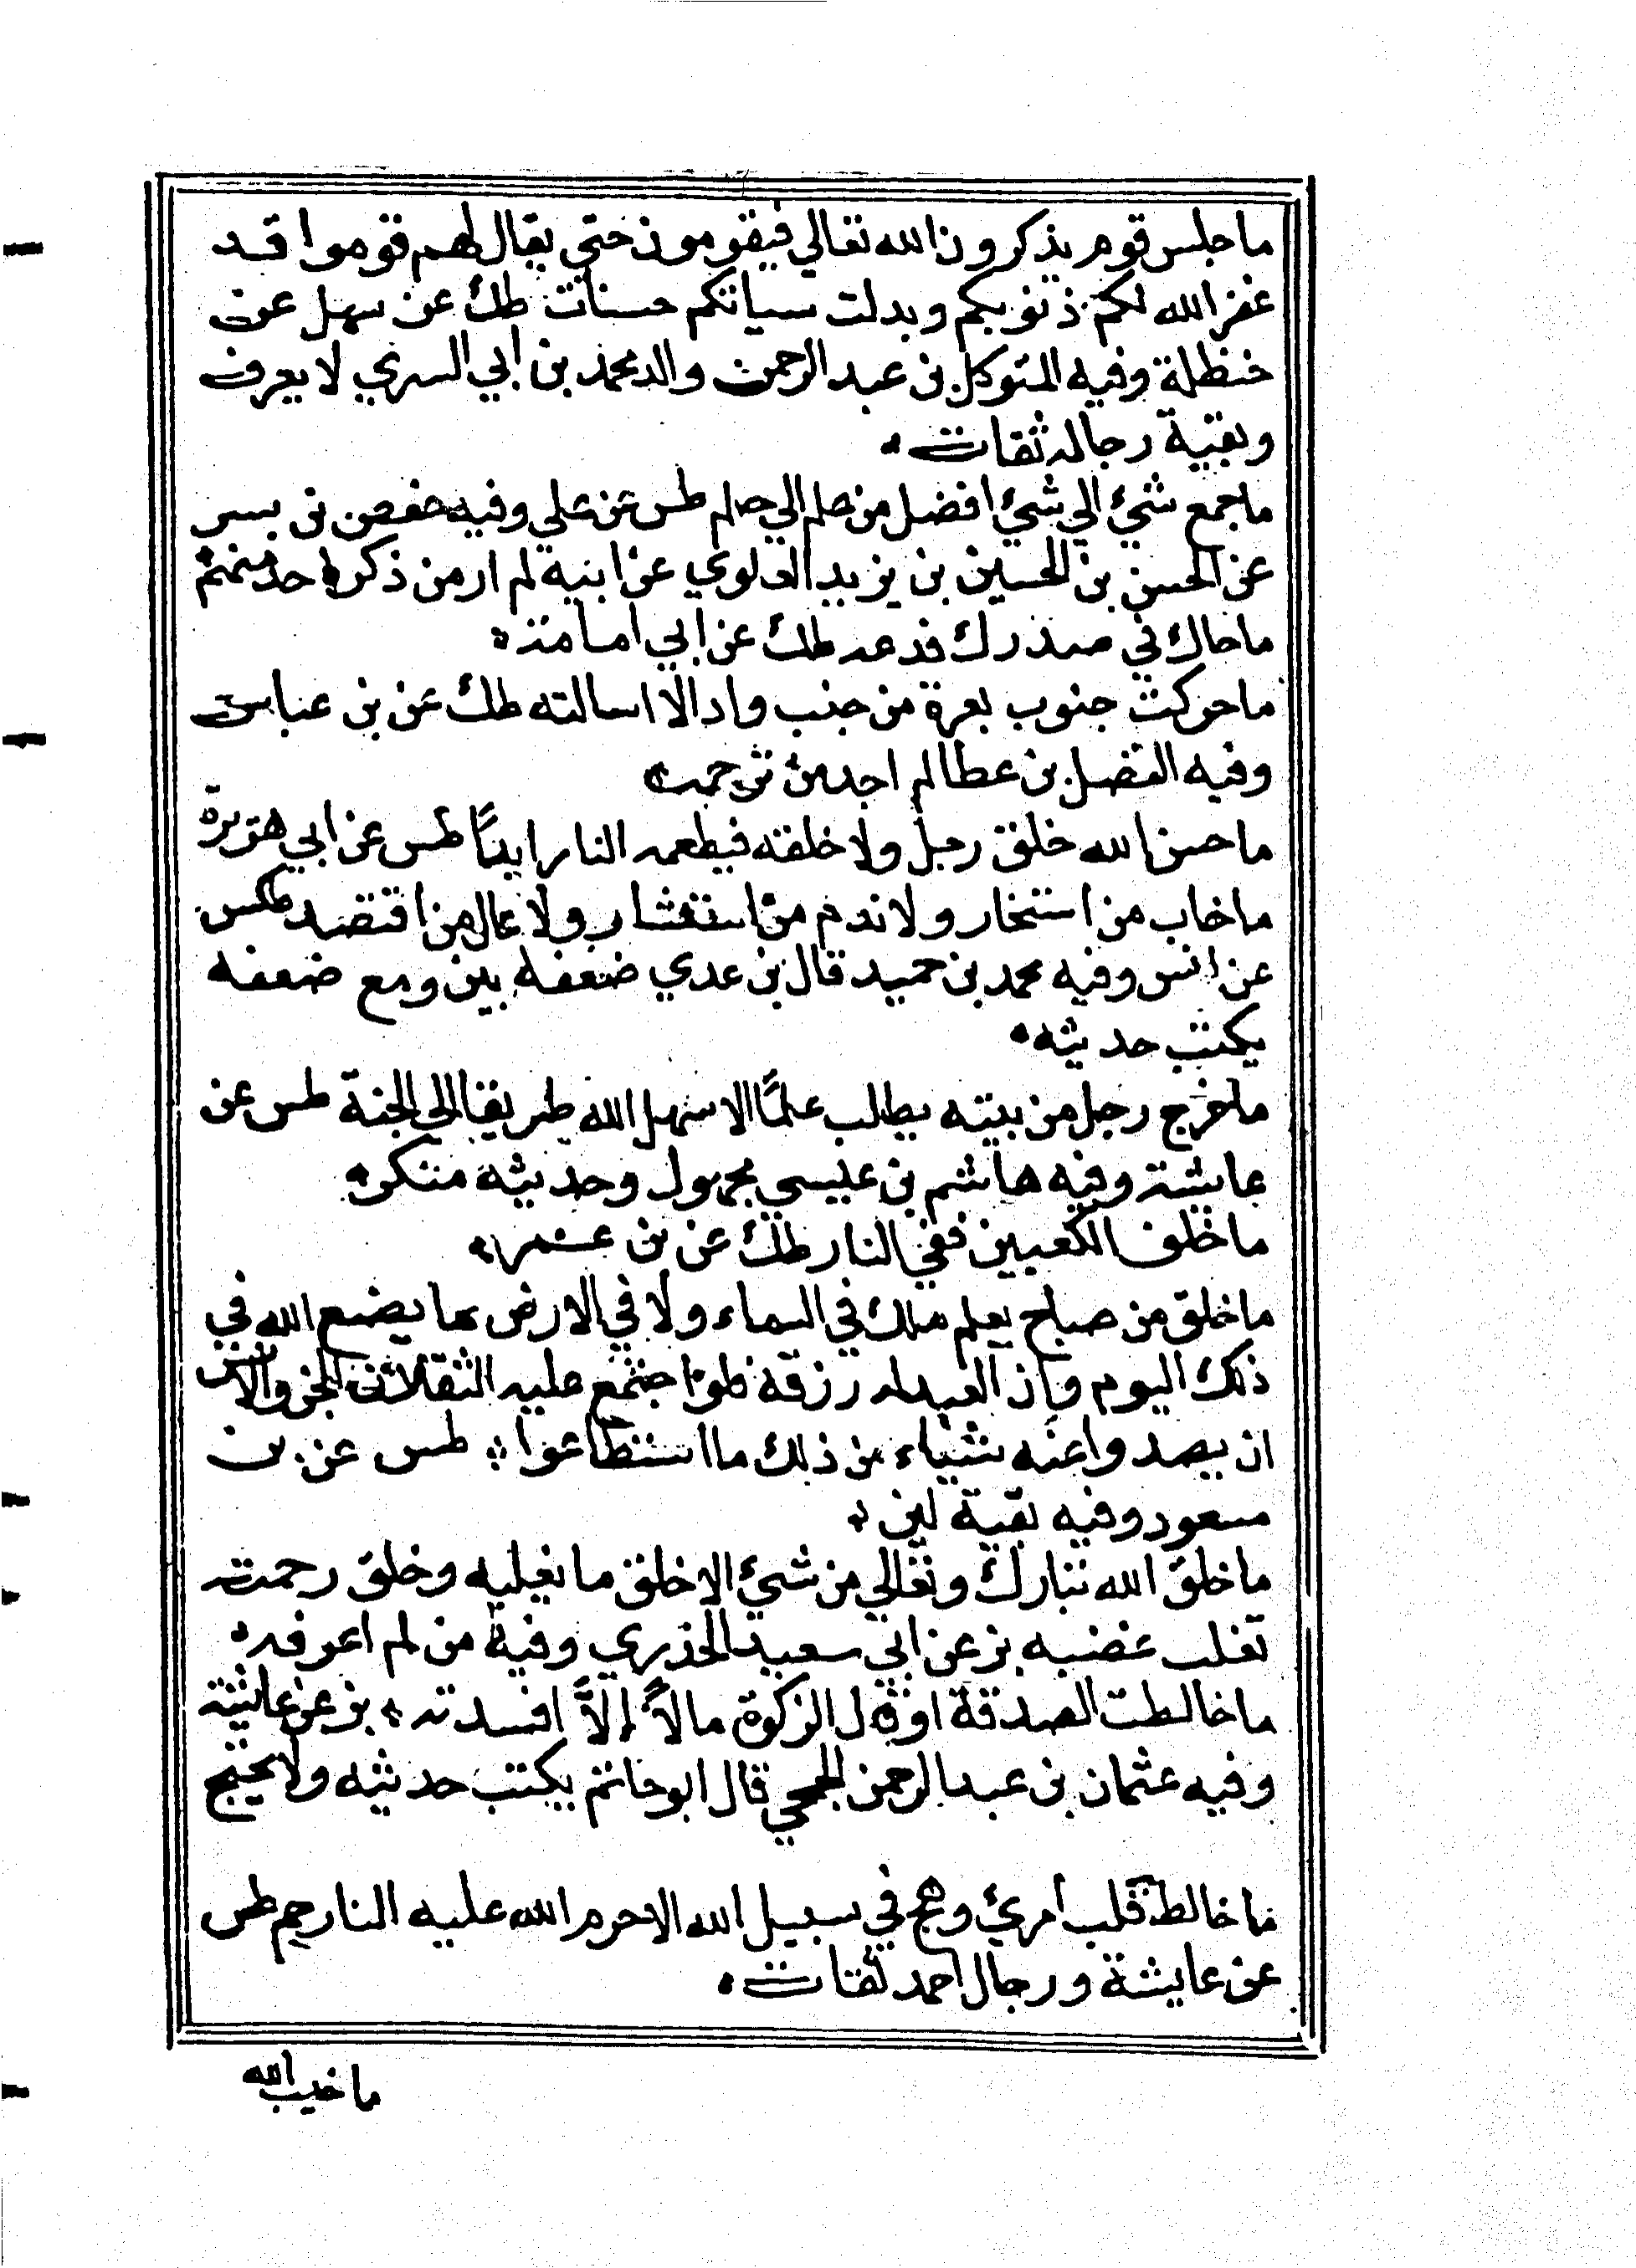 ما جلس قوم يذكرون الله تعالي فيقومون حتي يقال لهم قوموا قد
غفر الله لكم ذنوبكم وبدلت سياتكم حسنات طك عن سهل عن
حنظلة وفيه المتوكل بن عبد الرحمن والد محمد بن ابي السري لا يعرف
وبقية رجاله ثقات
ما جمع شئ الي شئ افضل من علم الي حلم طس عن علي وفيه حفص بن بسر
عن الحسن بن الحسين بن يزيد العلوي عن ابيه لم ار من ذكر احد منهم
ما حاك في صدرك فدعه طك عن ابي امامة
ما حركت جنوب بعرة من جنب واد الا اسالته طك عن بن عباس
وفيه الفضل بن عطا لم اجد من ترجمه
ما حسن الله خلق رجل ولا خلقه فيطعمه النار ابدًا طس عن ابي هريرة
ما خاب من استخار ولا ندم من استشار ولا عال من اقتصد طكس
عن انس وفيه محمد بن حميد قال بن عدي ضعفه بين ومع ضعفه
يكتب حديثه
ما خرج رجل من بيته يطلب علمًا الا سهل الله طريقا الي الجنة طس عن
عايشة وفيه هاشم بن عيسي مجهول وحديثه منكر
ما خلف الكعبين ففي النار طك عن بن عمر
ما خلق من صباح يعلم ملك في السماء ولا في الارض ما يصنع الله في
ذلك اليوم وان العبد له رزقه فلو اجتمع عليه الثقلان الجن والانس
ان يصدوا عنه شياء من ذلك ما استطاعوا طس عن بن
مسعود وفيه بقية لين
ما خلق الله تبارك وتعالي من شئ الا خلق ما يغلبه وخلق رحمته
تغلب غضبه بز عن ابي سعيد الخذري وفيه من لم اعرفه
ما خالطت الصدقة او قال الزكوة مالاً إلاَّ افسدته بز عن عايشة
وفيه عثمان بن عبد الرحمن الجمحي قال ابو حاتم يكتب حديثه ولا يحتج
ما خالط قلب امرئ وهج في سبيل الله الا حرم الله عليه النار حم طس
عن عايشة ورجال احمد ثقات
ما خيب الله